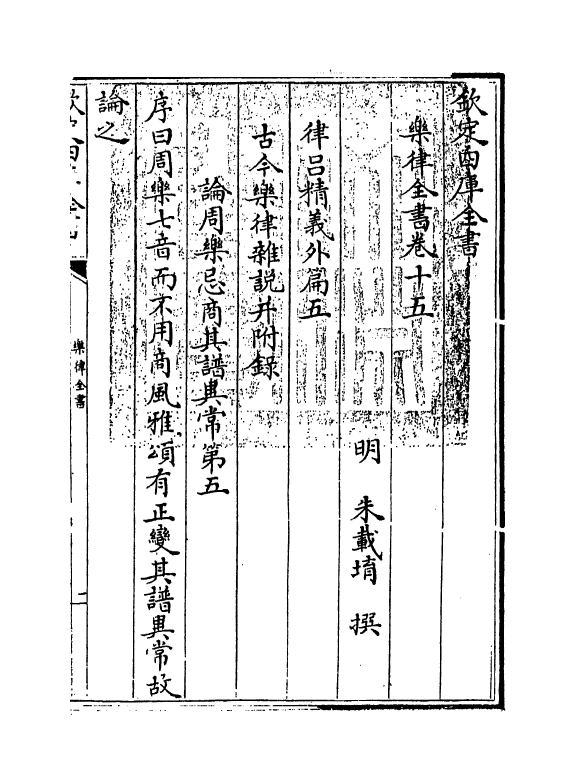 欽定四庫全書
樂律全書卷十五
明 朱載堉 撰
律吕精義外篇五
古今樂律雜説并附錄
論周樂忌商其譜異常第五
序曰周樂七音而不用商風雅頌有正變其譜異常故
論之
樂律全書